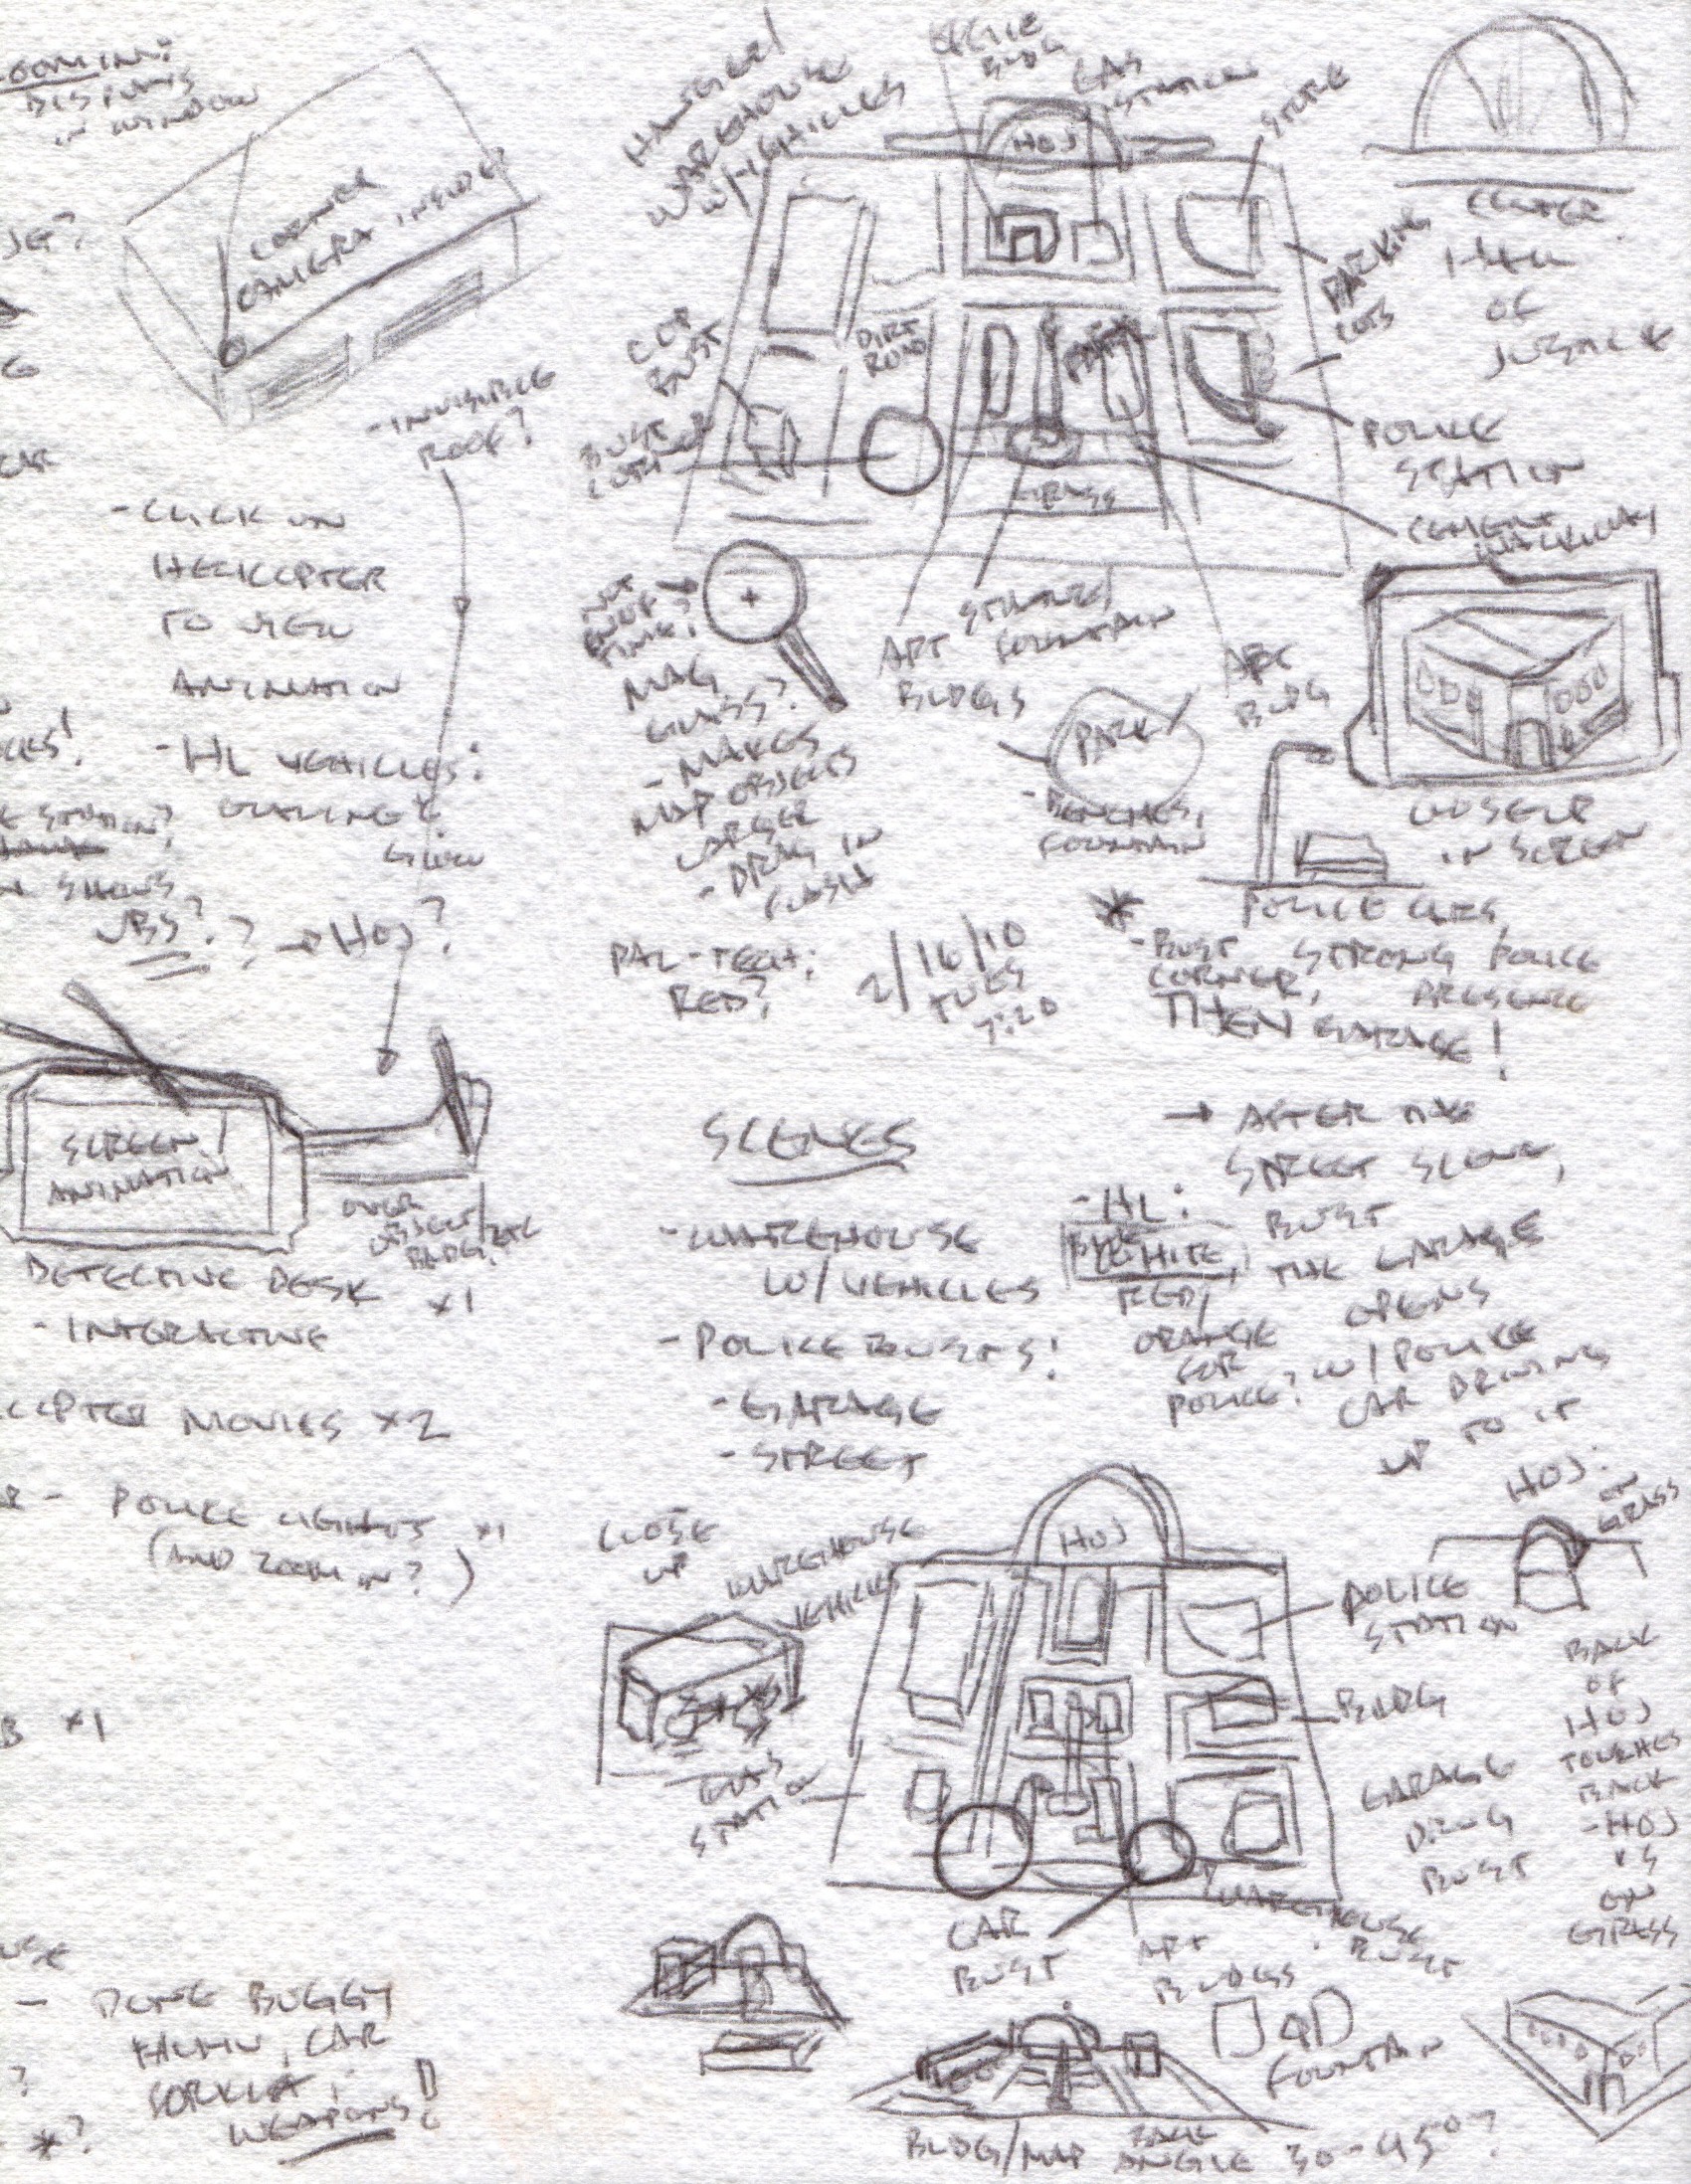 IN WINDOW
CORNER
CAMERA INSIDE?
- INVISIBLE
ROOF?
- CLICK ON
HELICOPTER
TO VIEW
ANIMATION
- HL VEHICLES:
OUTLINE &
GLOW
SHOWS
JBS? ? → HOJ?
SCREEN/
ANIMATION
OVER
BLDG, ETC
DETECTIVE DESK x1
- INTERACTIVE
MOVIES x2
- POLICE LIGHTS x1
(AND ZOOM IN?)
x1
- DUNE BUGGY
CAR
FORKLIFT,
WEAPONS!
*?
HANGER/
WAREHOUSE
W/ VEHICLES
BLDG
GAS
STATION
STORE
HOJ
PARKING
LOTS
COP
BUST
DIRT
ROAD
PARK
BUST
CORNER
GRASS
POLICE
STATION
CEMENT
WALKWAY
CENTER
HALL
OF
JUSTICE
NOT
ENUF
TIME?
MAG
GLASS?
- MAKES
MAP OBJECTS
LARGER
- DRAG IN
FLASH
APT
BLDGS
STATUE/
FOUNTAIN
APT
BLDG
PARK
- BENCHES,
FOUNTAIN
CLOSEUP
IN SCREEN
PAL-TECH:
RED?
2/16/10
TUES
7:20
POLICE CARS,
STRONG POLICE
PRESENCE
* - BUST
CORNER,
THEN GARAGE!
→ AFTER THE
STREET SCENE,
BUST
THE GARAGE
OPENS
W/ POLICE
CAR DRIVING
UP TO IT
SCENES
- WAREHOUSE
W/ VEHICLES
- POLICE BUSTS!
- GARAGE
- STREET
- HL:
WHITE,
RED/
ORANGE
FOR
POLICE?
CLOSE
UP
WAREHOUSE
VEHICLES
HOJ
GAS
STATION
POLICE
STATION
BLDG
GARAGE
DRUG
BUST
HOJ
ON
GRASS
BACK
OF
HOJ
TOUCHES
BACK
- HOJ
IS
ON
GRASS
CAR
BUST
APT
BLDGS
WAREHOUSE
BUST
FOUNTAIN
BLDG/MAP
BACK
ANGLE 30-45°?